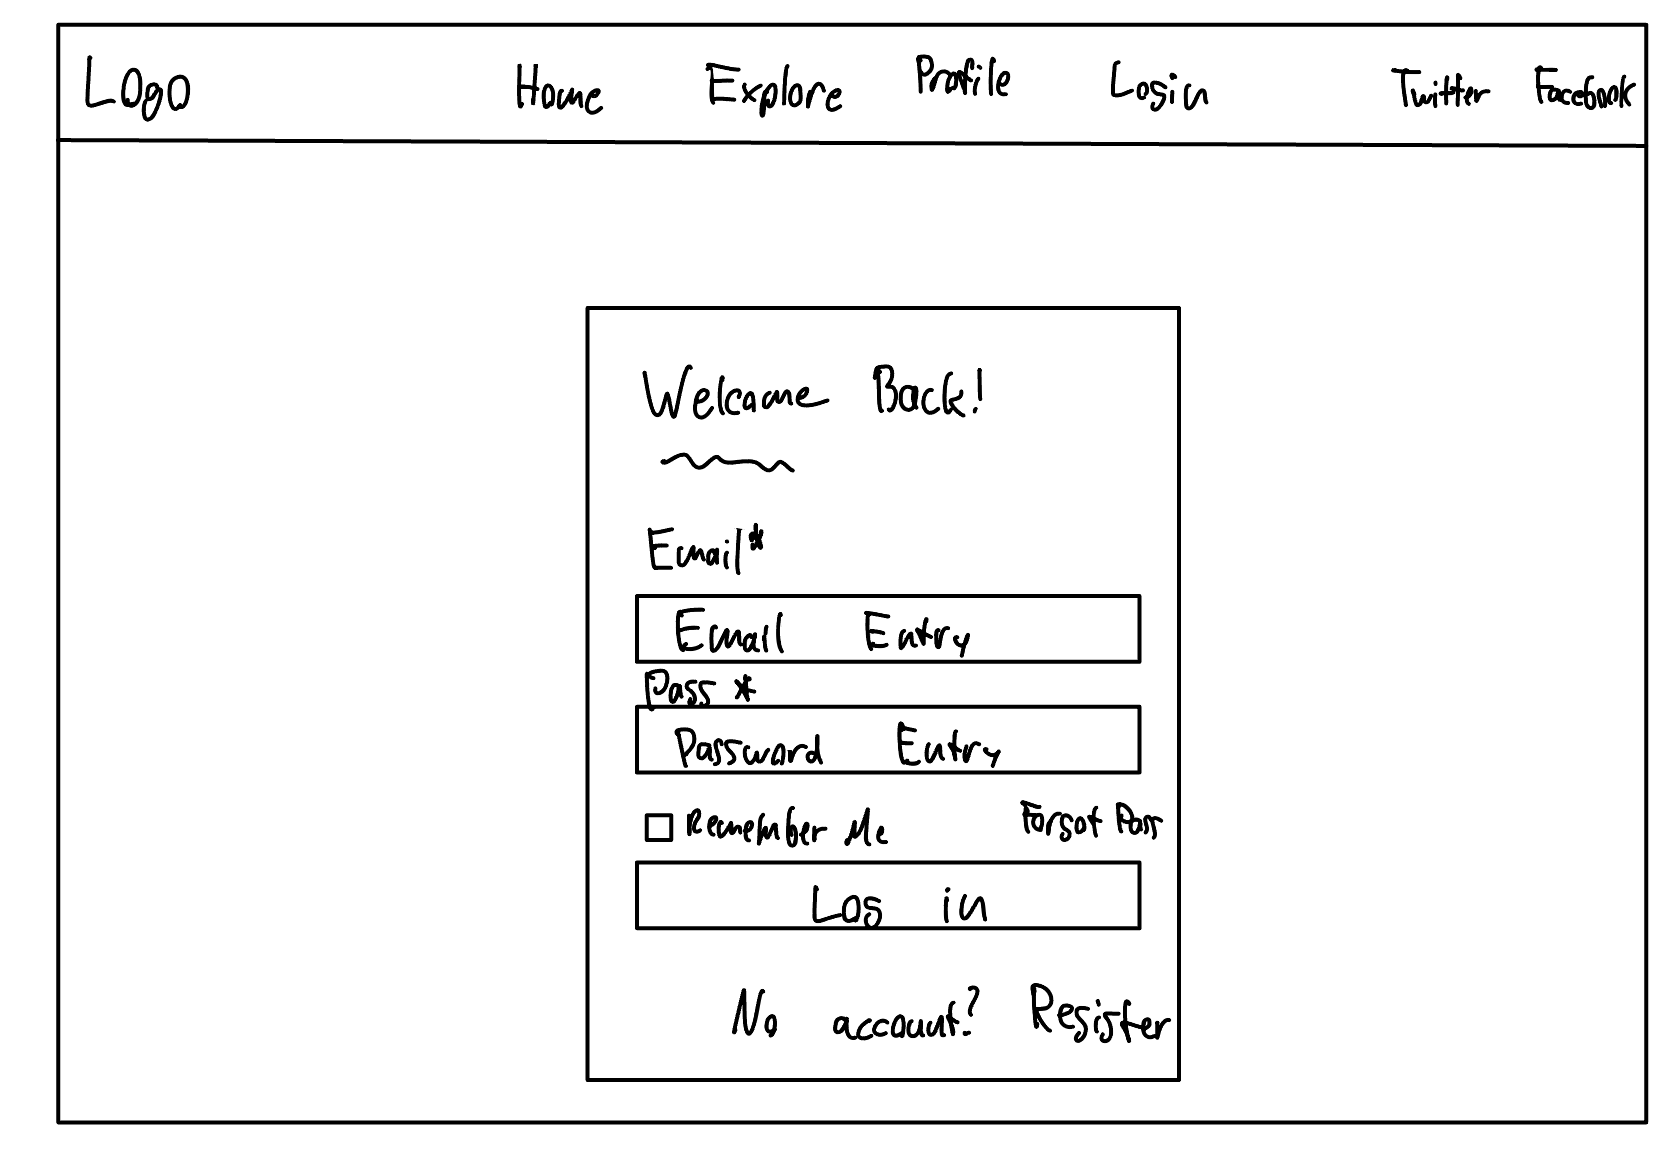 Logo Home Explore Profile Login Twitter Facebook
Welcome Back!
Email*
Email Entry
Pass *
Password Entry
Remember Me Forgot Pass
Log in
No account? Register